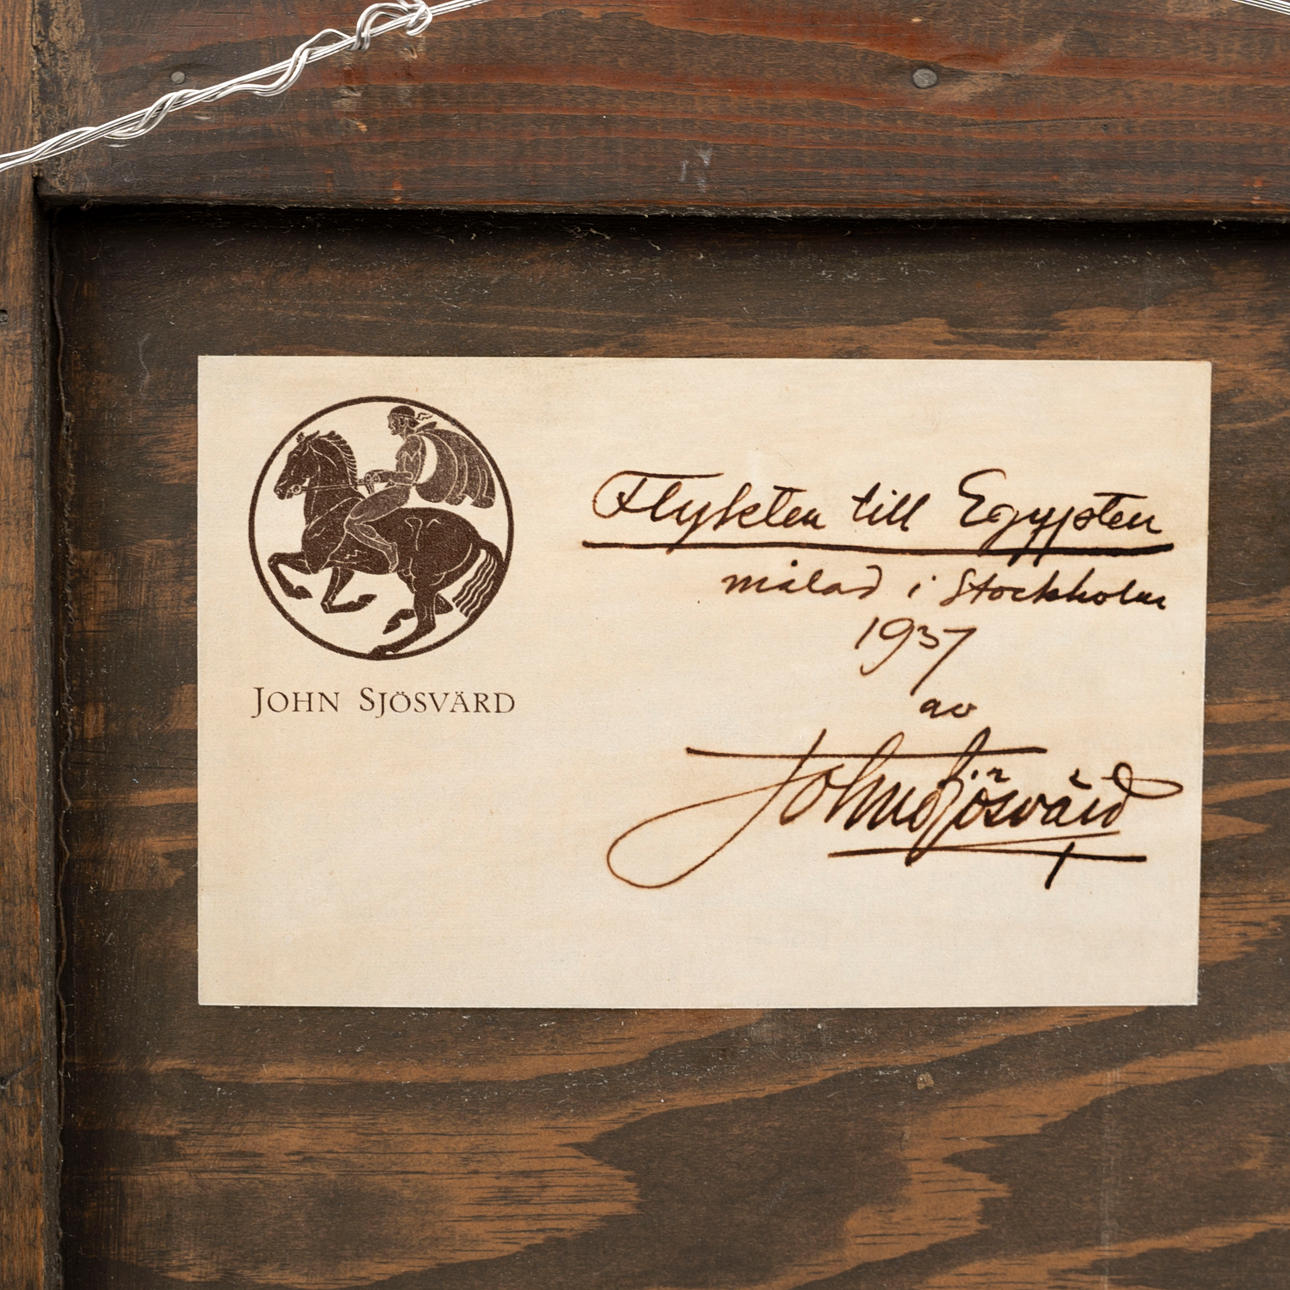 JOHN SJÖSVÄRD
Flykten till Egypten
målad i Stockholm
1937
av
John Sjösvärd